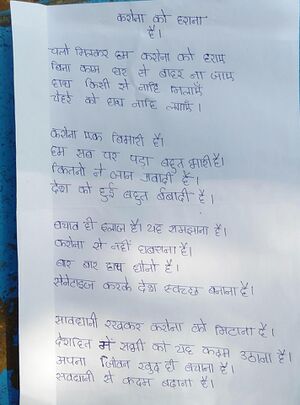 करोना को हराना
है।
चलो मिलकर हम करोना को हराए
बिना काम घर से बाहर ना जाए
हाथ किसी से नाहि मिलाए
चेहरे को हाथ नाहि लगाए।
करोना एक बिमारी है।
हम सब पर पड़ा बहुत भारी है।
कितनो ने जान गवादी है।
देश को हुई बहुत बर्बादी है।
बचाव ही इलाज है। यह समझाना है।
करोना से नहीं घाबराना है।
बार बार हाथ धोनो है।
सेनेटाइज करके देश स्वच्छ बनाना है।
सावधानी रखकर करोना को मिटाना है।
देशहित में सभी को यह कदम उठाना है।
अपना जिवन खुद ही बचाना है।
सावधानी से कदम बढ़ाना है।